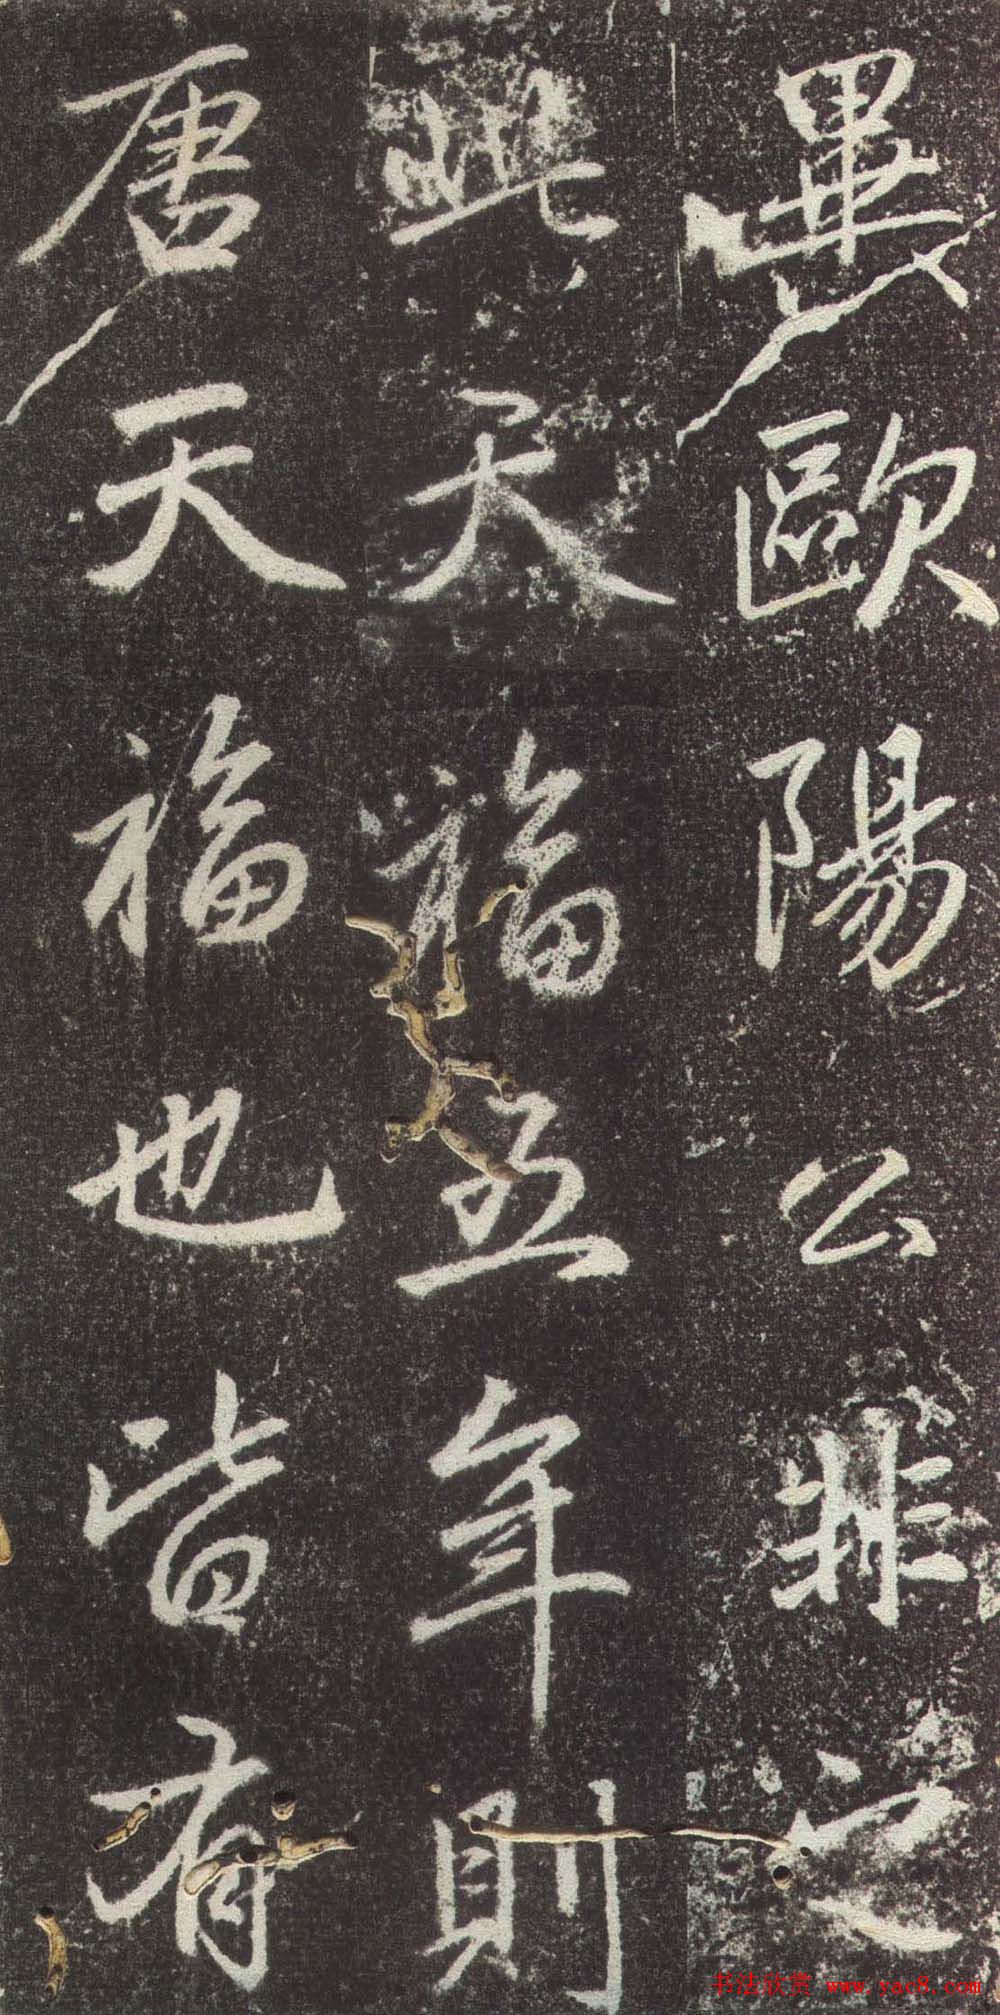 畢歐陽公非之
此天福五年則
唐天福也皆有
书法欣赏 www.yac8.com